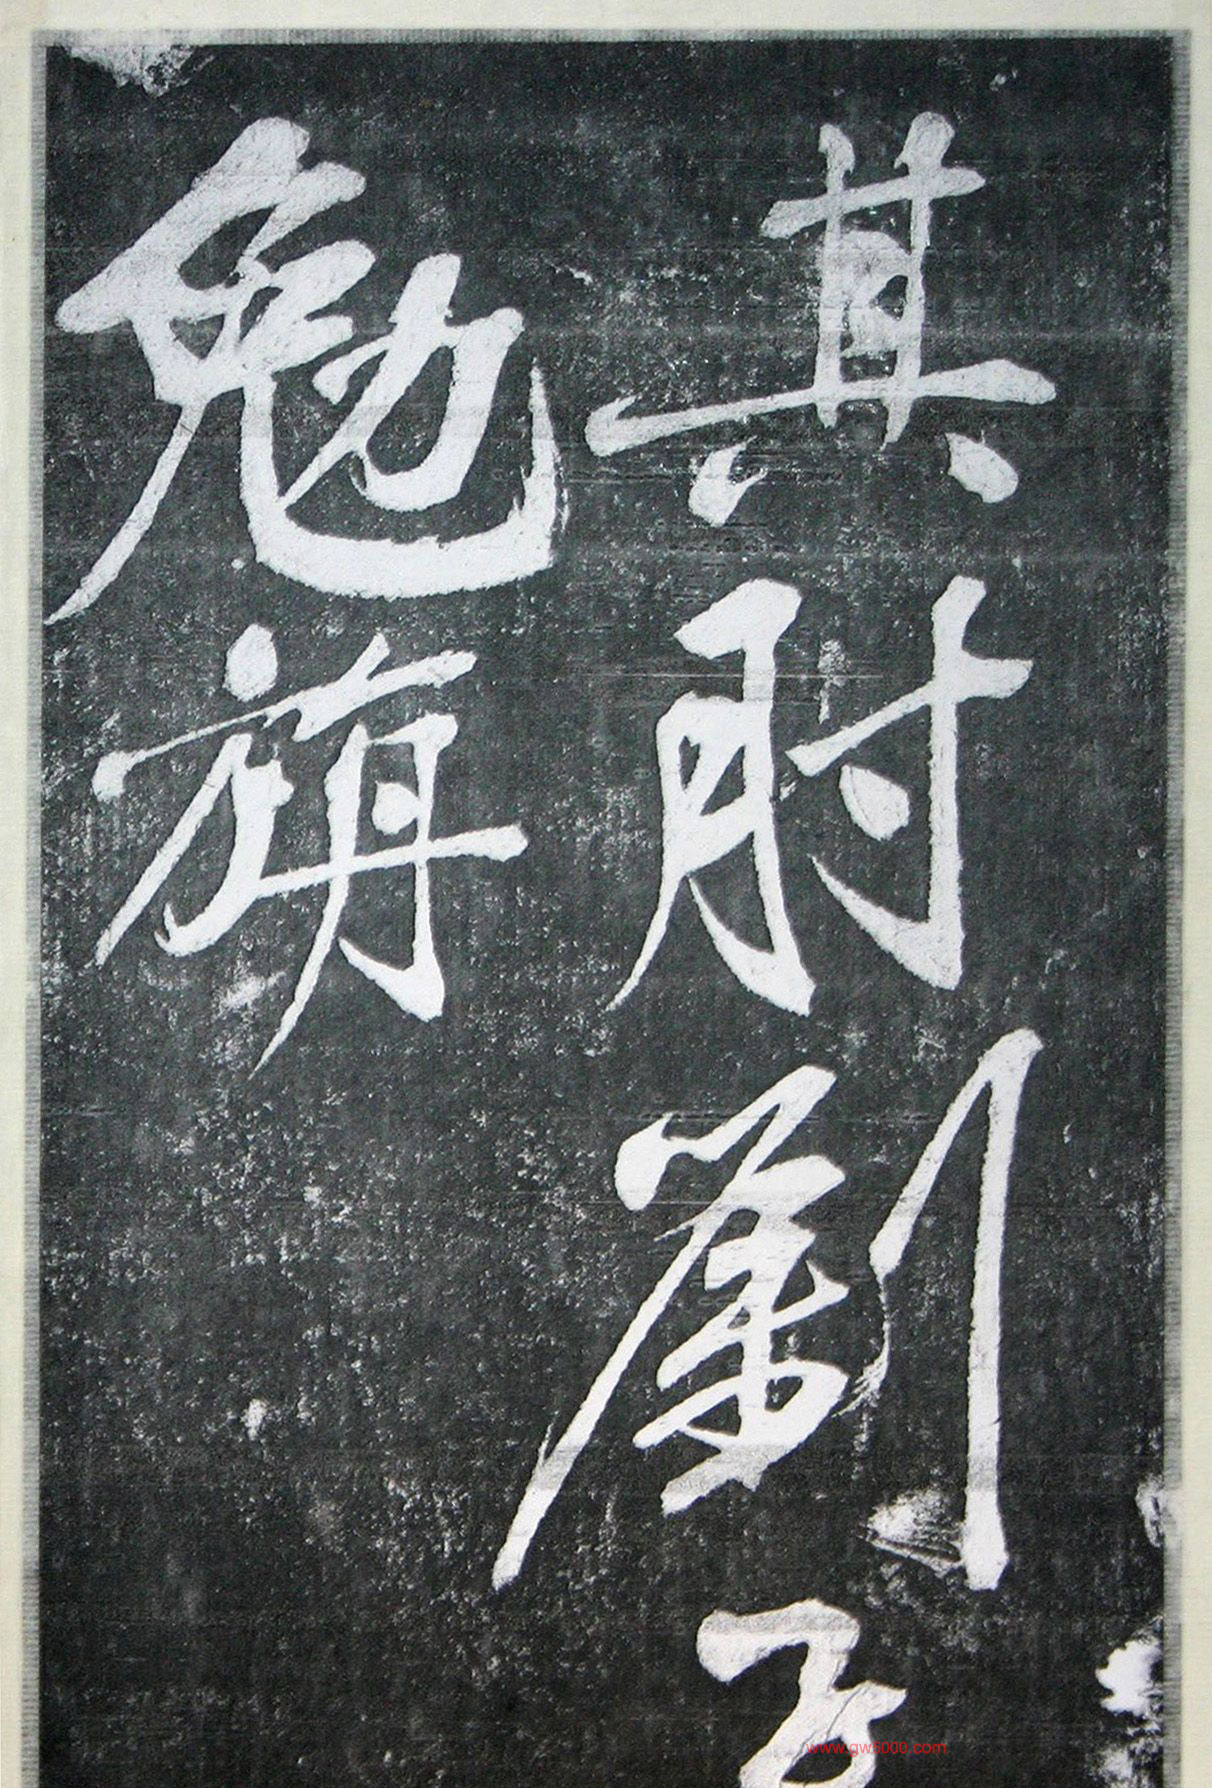 其肘劉
勉旃
www.gw5000.com